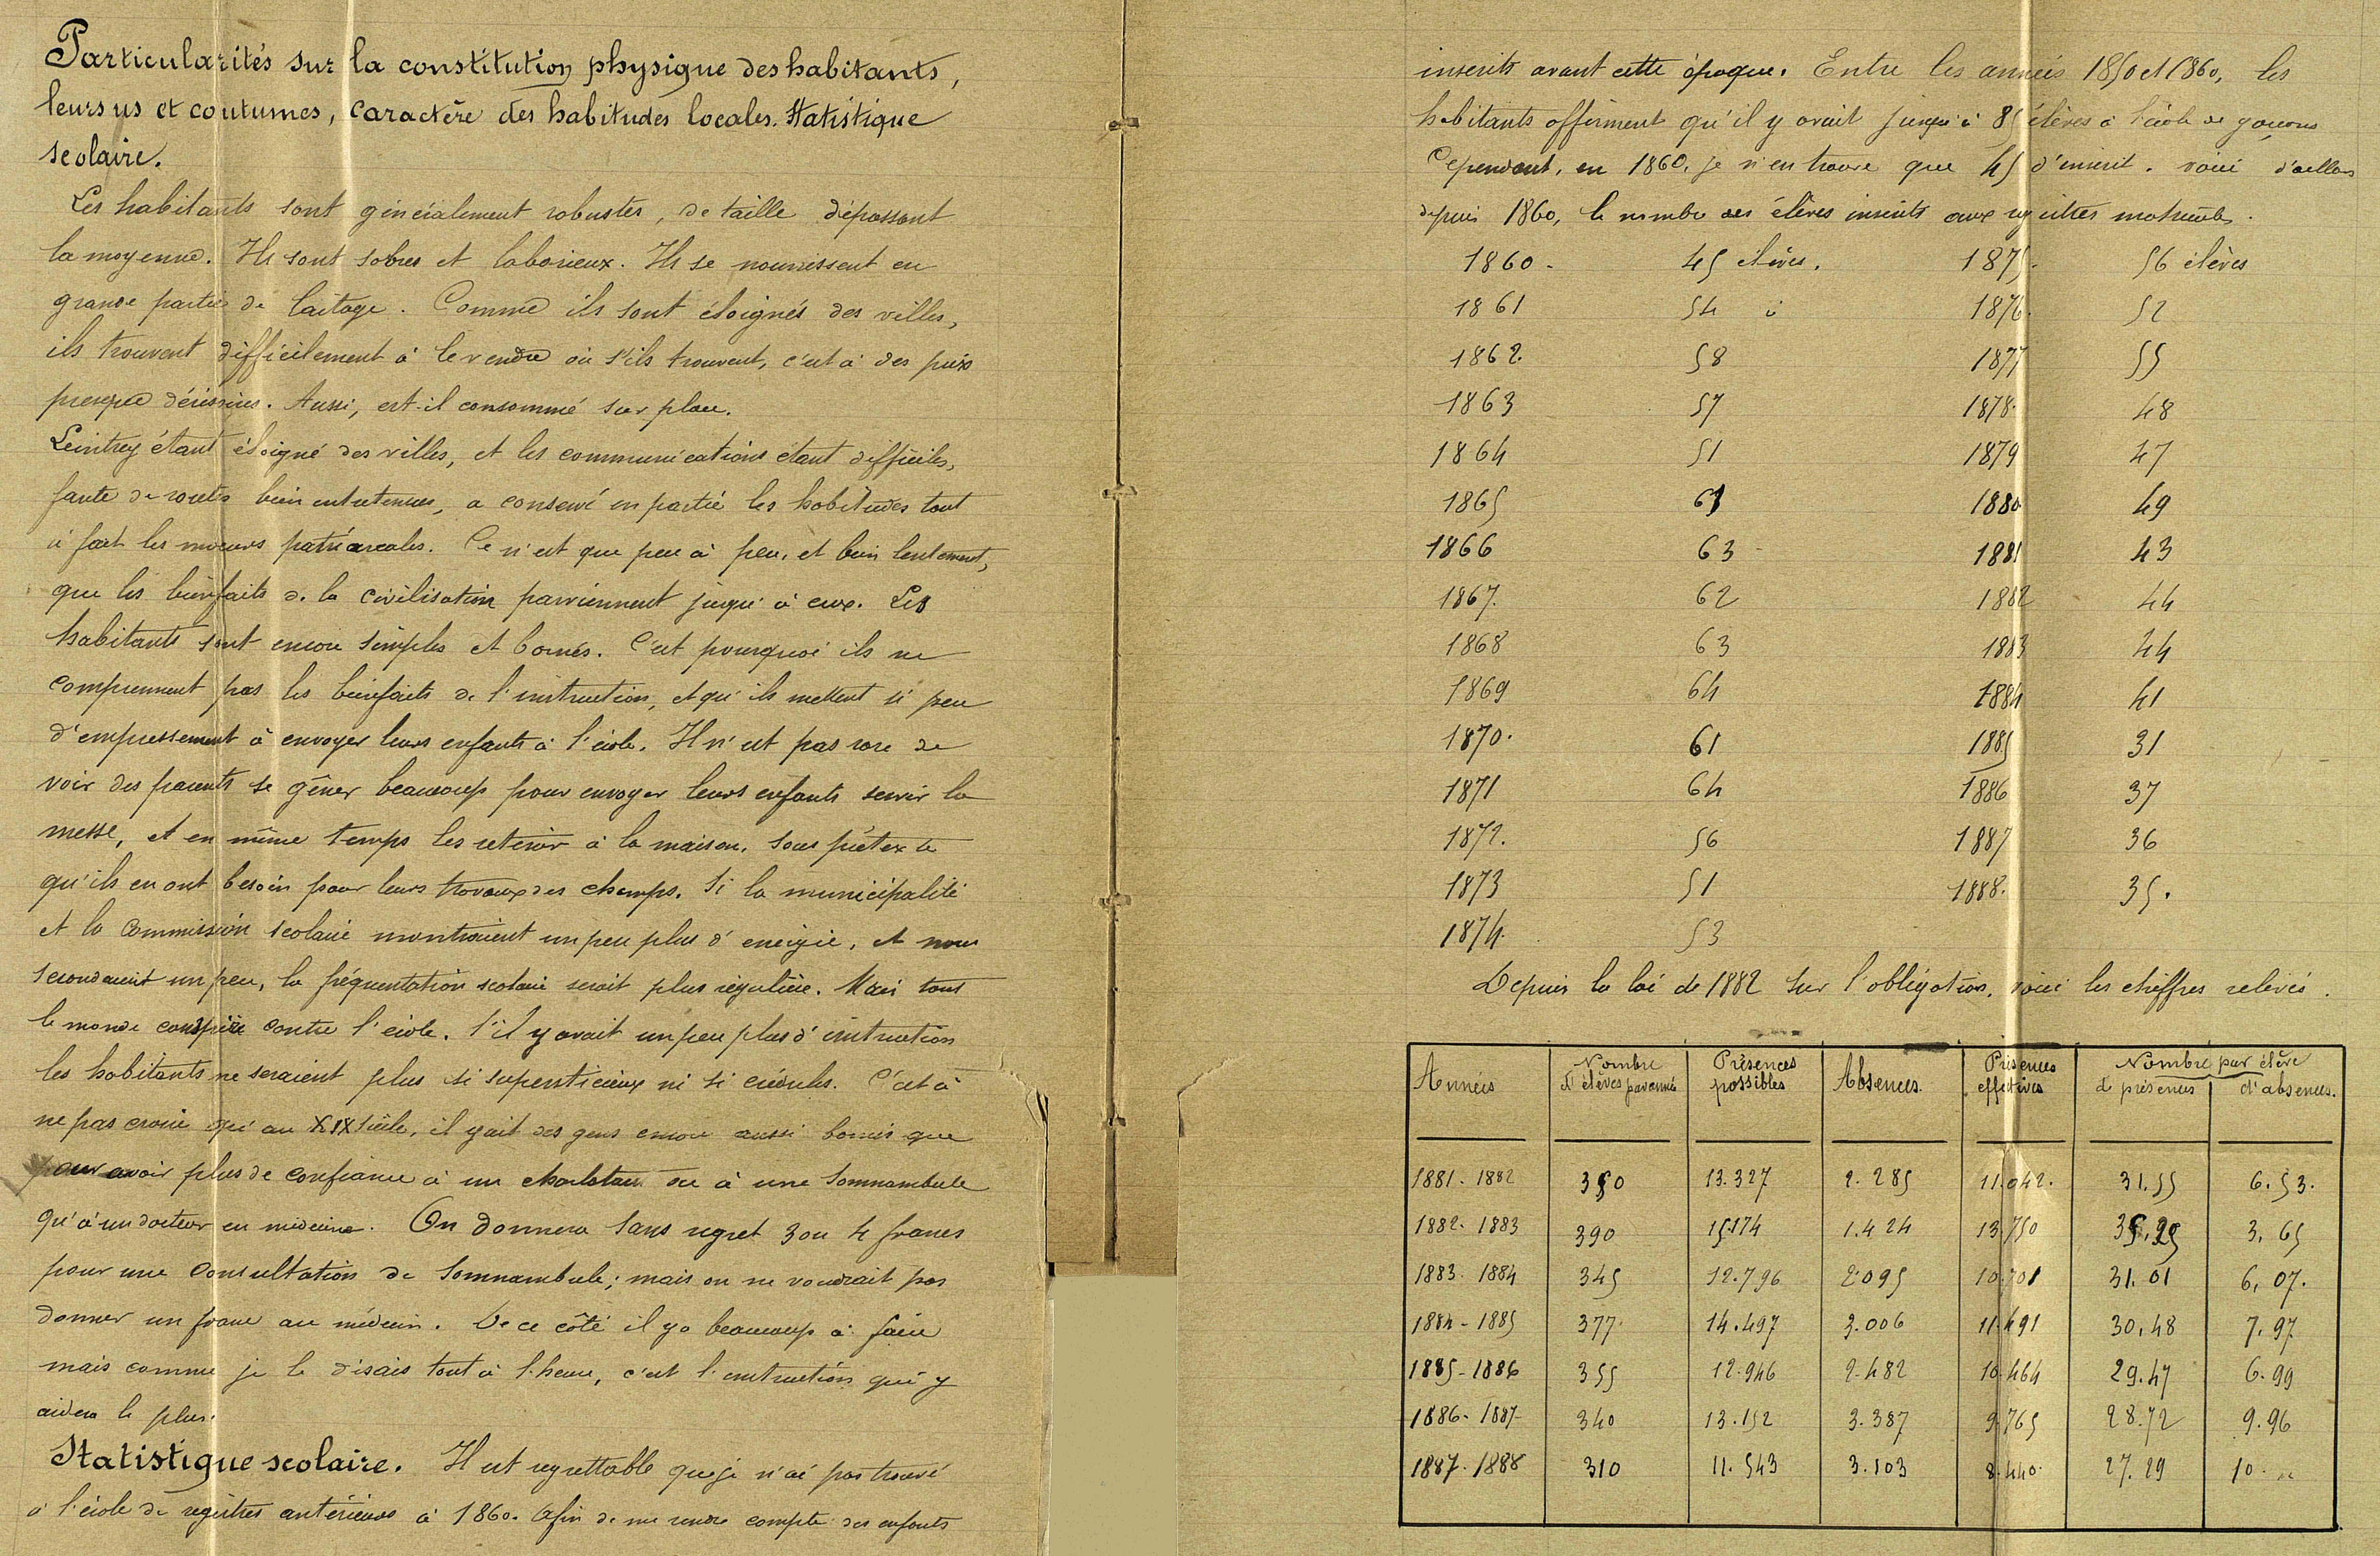 Particularités sur la constitution physique des habitants,
leurs us et coutumes, caractère des habitudes locales. Statistique
scolaire.
Les habitants sont généralement robustes, de taille dépassant
la moyenne. Ils sont sobres et laborieux. Ils se nourrissent en
grande partie de laitage. Comme ils sont éloignés des villes,
ils trouvent difficilement à le vendre où s'ils trouvent, c'est à des prix
presque dérisoires. Aussi, est-il consommé sur place.
Leintrey étant éloigné des villes, et les communications étant difficiles,
faute de routes bien entretenues, a conservé en partie les habitudes tout
à fait les mœurs patriarcales. Ce n'est que peu à peu, et bien lentement,
que les bienfaits de la civilisation parviennent jusqu'à eux. Les
habitants sont encore simples et bornés. C'est pourquoi ils ne
comprennent pas les bienfaits de l'instruction, et qu'ils mettent si peu
d'empressement à envoyer leurs enfants à l'école. Il n'est pas rare de
voir des parents se gêner beaucoup pour envoyer leurs enfants servir la
messe, et en même temps les retenir à la maison, sous prétexte
qu'ils en ont besoin pour leurs travaux des champs. Si la municipalité
et la Commission scolaire montraient un peu plus d'énergie, et nous
secondaient un peu, la fréquentation scolaire serait plus régulière. Mais tout
le monde conspire contre l'école. S'il y avait un peu plus d'instruction
les habitants ne seraient plus si superstitieux ni si crédules. C'est à
ne pas croire qu'au XIX siècle, il y ait des gens encore aussi bornés que
pour avoir plus de confiance à un charlatan ou à une somnambule
qu'à un docteur en médecine. On donnera sans regret 3 ou 4 francs
pour une consultation de somnambule; mais on ne voudrait pas
donner un franc au médecin. De ce côté il y a beaucoup à faire
mais comme je le disais tout à l'heure, c'est l'instruction qui y
aidera le plus.
Statistique scolaire. Il est regrettable que je n'ai pas trouvé
à l'école de registres antérieurs à 1860. Afin de me rendre compte des enfants
inscrits avant cette époque. Entre les années 1850 et 1860, les
habitants affirment qu'il y avait jusqu'à 85 élèves à l'école de garçons
Cependant, en 1860, je n'en trouve que 45 d'inscrit. Voici d'ailleurs
depuis 1860, le nombre des élèves inscrits aux registres matricules.
1860. 45 élèves. 1875. 56 élèves
1861 54 1876. 52
1862. 58 1877 55
1863 57 1878. 48
1864 51 1879 47
1865 1880 49
1866 63 1881 43
1867. 62 1882 44
1868 63 1883 44
1869 64 1884 41
1870. 61 1885 31
1871 64 1886 37
1872. 56 1887 36
1873 51 1888. 35.
1874. 53
Depuis la loi de 1882 sur l'obligation, voici les chiffres relevés.
Années Nombre d'élèves par année Présences possibles Absences. Présences effectives Nombre par élève
de présences d'absences.
1881-1882 350 13.327 2.285 11.042. 31.55 6.53.
1882-1883 390 15174 1.424 13.750 35.25 3,65
1883-1884 345 12.796 2.095 10.701 31.01 6,07.
1884-1885 377 14.497 3.006 11.491 30,48 7.97
1885-1886 355 12.946 2.482 10.464 29.47 6.99
1886-1887 340 13.152 3.387 9.765 28.72 9.96
1887-1888 310 11.543 3.103 8.440 27.29 10. "